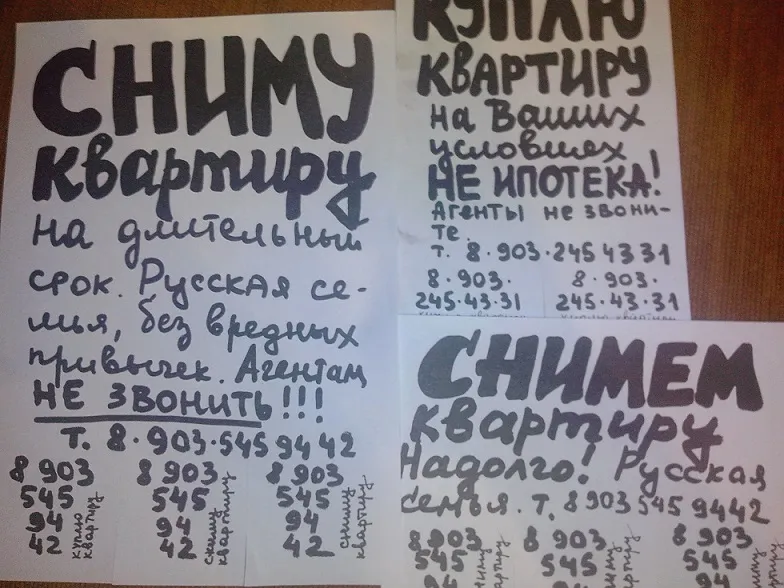 СНИМУ
квартиру
на длительный
срок. Русская се-
мья, без вредных
привычек. Агентам
НЕ ЗВОНИТЬ!!!
т. 8·903·545 94 42
8 903
545
94
42
куплю
квартиру
8 903
545
94
42
сниму
квартиру
8 903
545
94
42
сниму
квартиру
КУПЛЮ
КВАРТИРУ
на Ваших
условиях
НЕ ИПОТЕКА!
Агенты не звони-
те.
т. 8·903·245 43 31
8·903·
245·43·31
8·903·
245·43·31
СНИМЕМ
квартиру
Надолго! Русская
семья. т. 8 903 545 9442
8 903
545
94
8 903
545
94
8 903
545
94